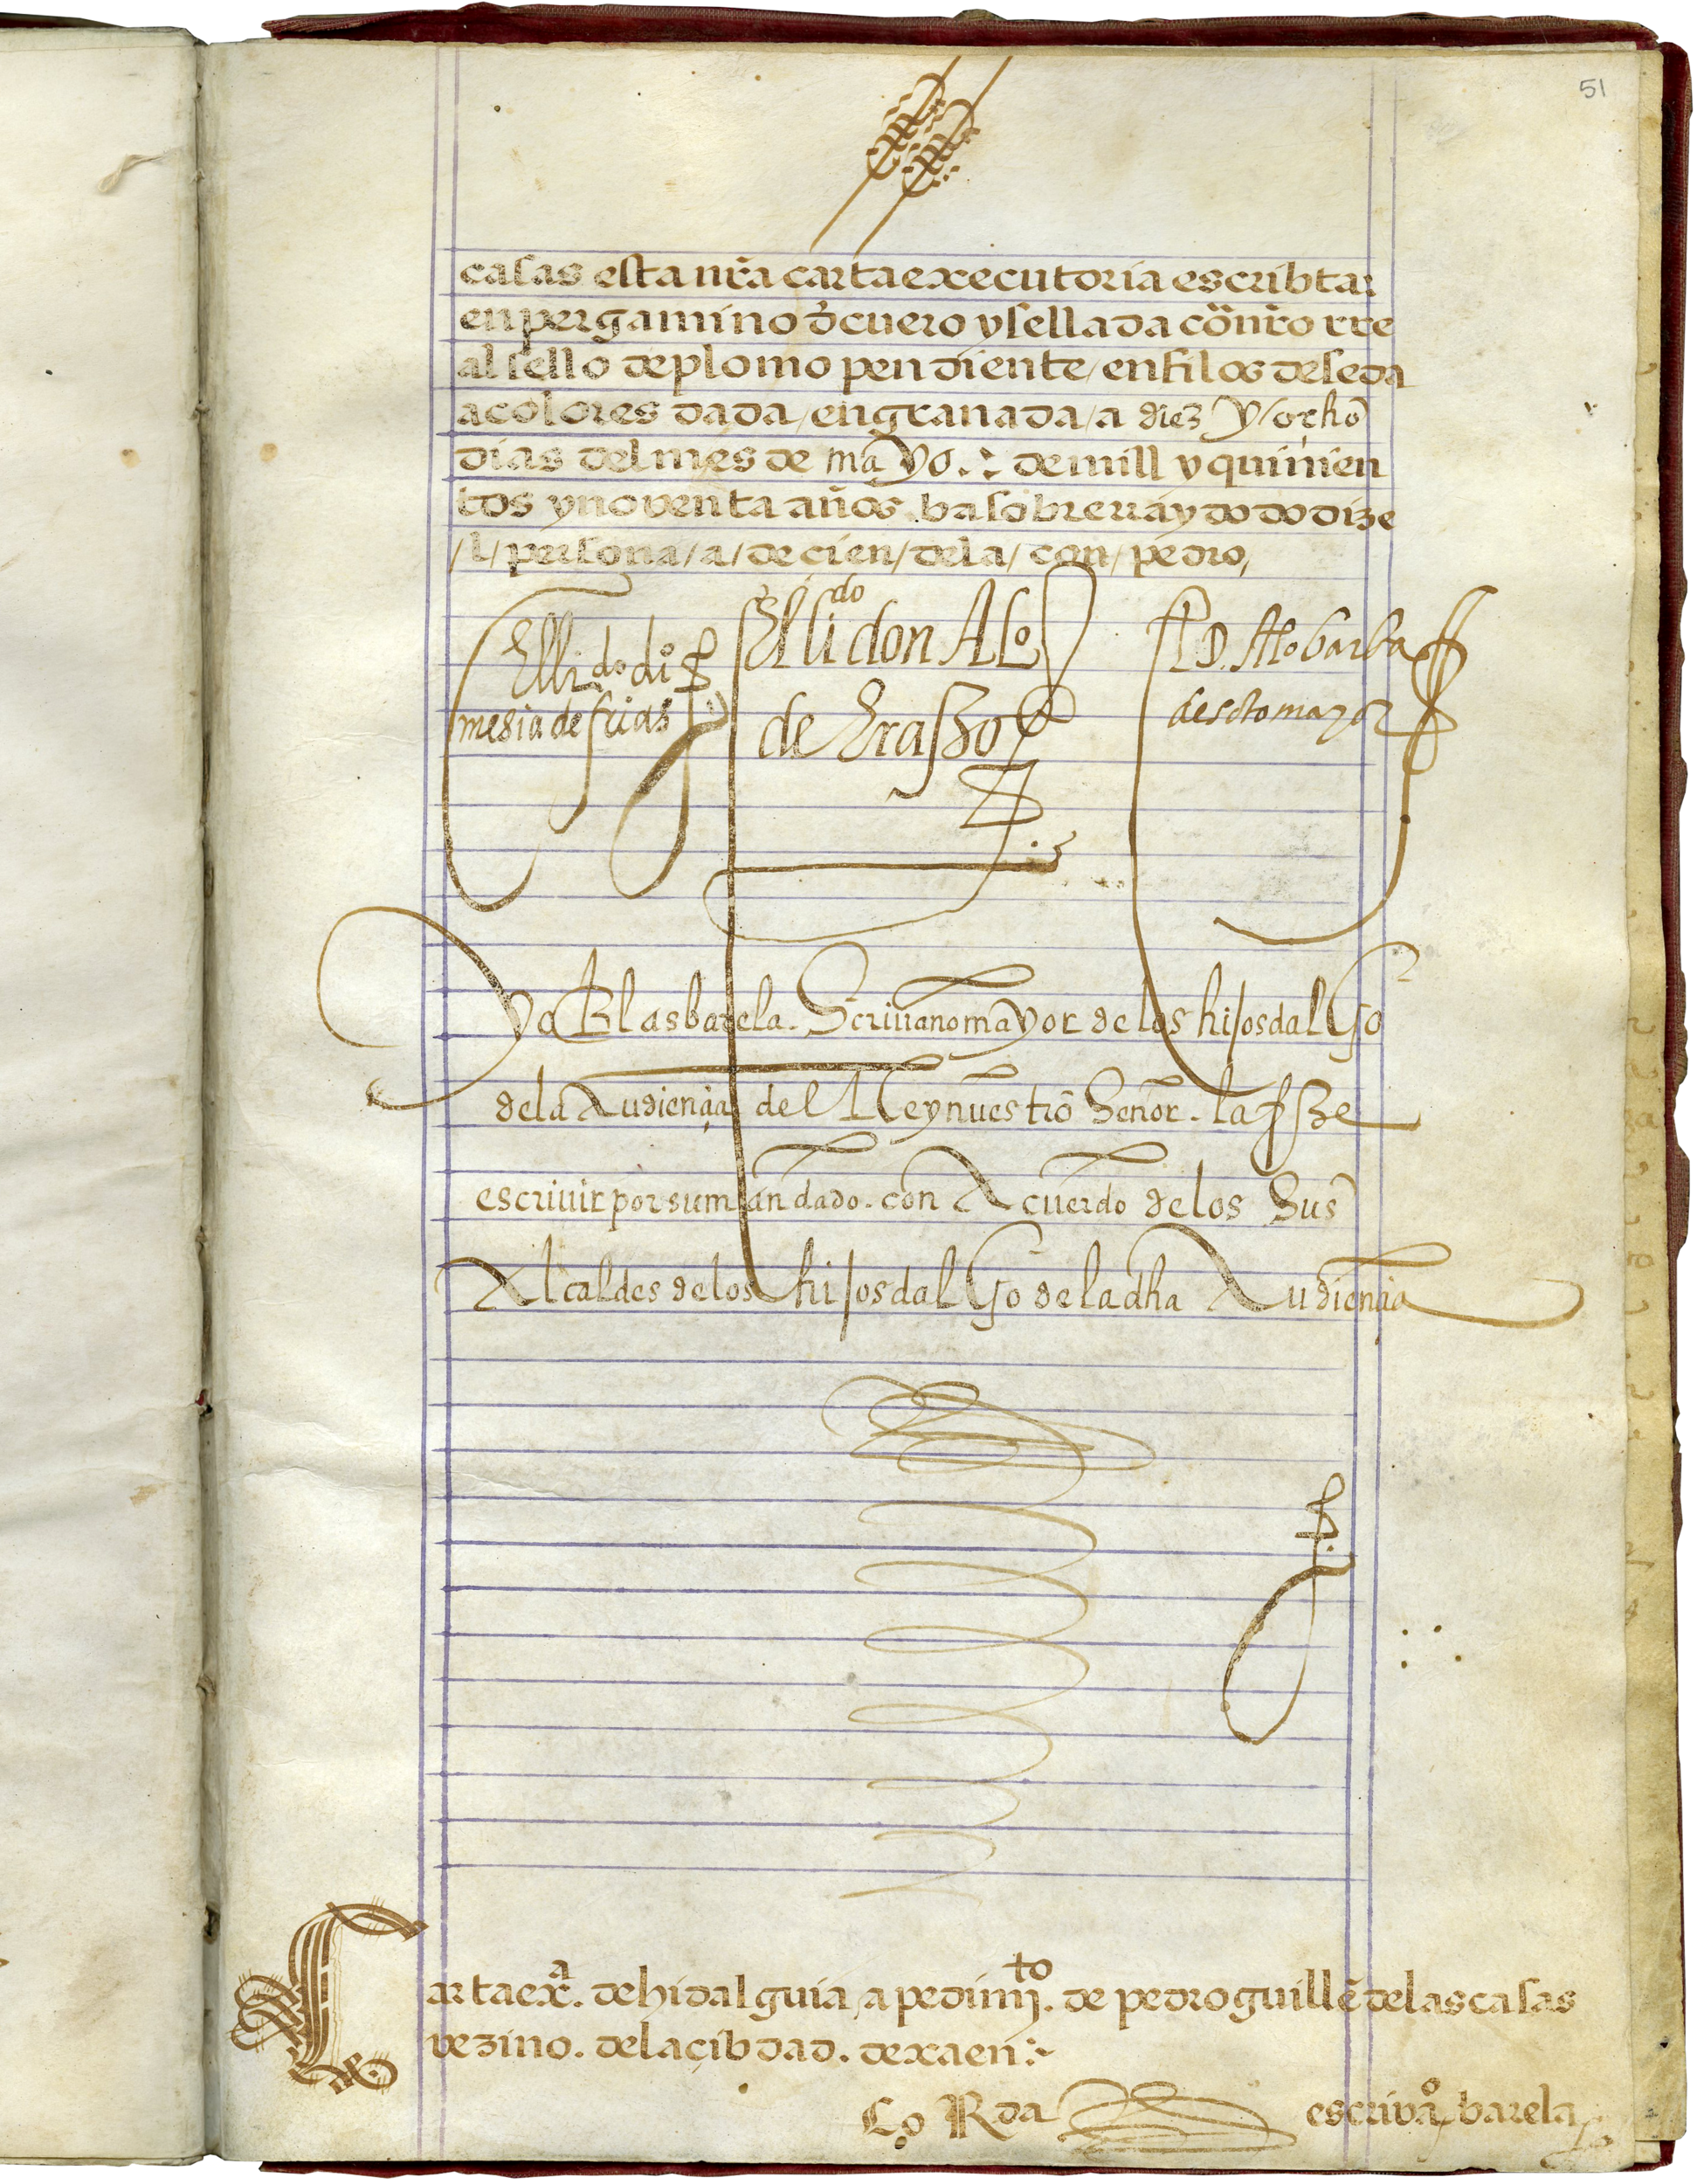 51
casas esta nr̃a carta executoria escribta
en pergamino d̉ cuero y sellada cõ nr̃o rre
al sello de plomo pendiente / en filos de seda
a colores dada / en granada / a diez y ocho
dias del mes de mayo .: de mill y quinien
tos y noventa años. ba sobre rraydo do dize
/ l / persona / a / de cien / dela / con / pedro /
El lido don Alo
de Erasso
El lido di°
mesia de frias
El D. Alo barba
de sotomayor
yo Blas barela. Scriuano mayor de los hijosdalgo
dela Audiençia del Rey nuestro Señor. la fize
escriuir por su mandado. con Acuerdo de los Sus
Alcaldes de los hijosdalgo de la dha Audiençia
Carta exª. de hidalguia, a pedimto. de pedro guillẽ de las casas
vezino. de la çibdad. de xaen :~
Rda escrivaº, barela